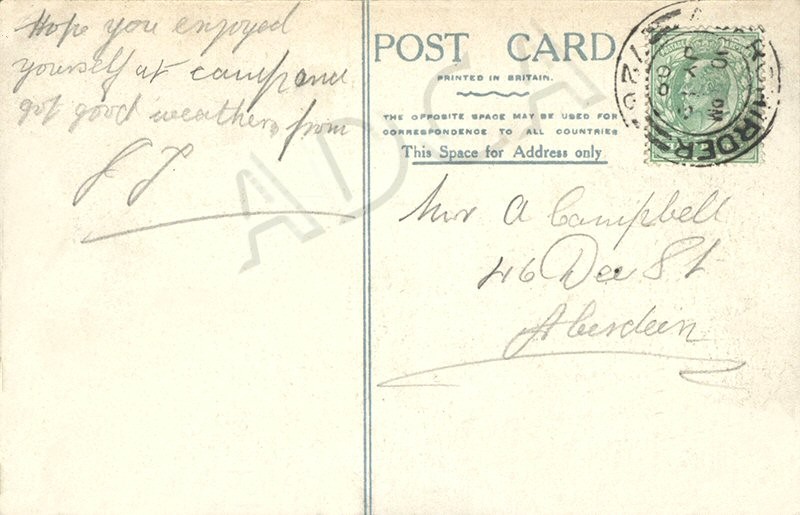 Hope you enjoyed
yourself at camp and
got good weather, from
J. P.
POST CARD
PRINTED IN BRITAIN.
THE OPPOSITE SPACE MAY BE USED FOR
CORRESPONDENCE TO ALL COUNTRIES
This Space for Address only
A Campbell
46 Dee St
Aberdeen
ADCA